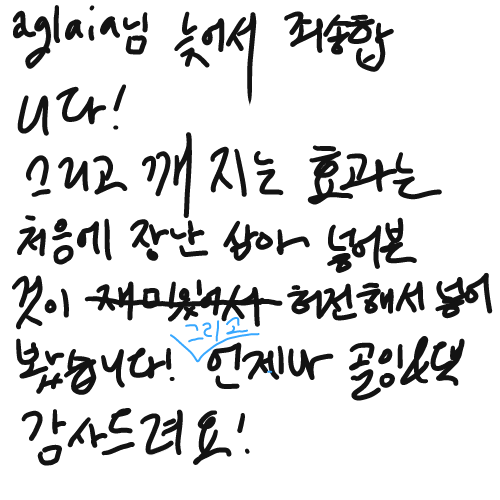 aglaia님 늦어서 죄송합
니다!
그리고 깨지는 효과는
처음에 장난 삼아 넣어본
것이 재미있어서 허전해서 넣어
봤습니다! 그리고 언제나 골잉&댓
감사드려요!